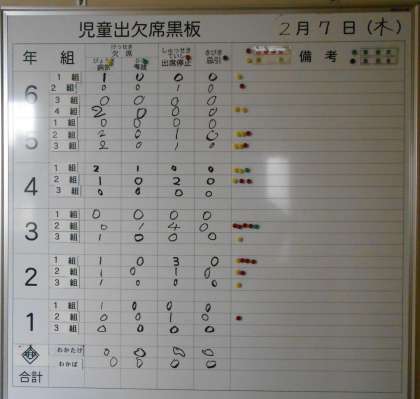 児童出欠席黒板 2月7日(木)
年 組 けっせき 欠席 しゅっせきていし 出席停止 きびき 忌引 備考
びょうき 病気
6 1組 1 0 0 0
2組 0 0 1 0
3組 0 0 0 0
4組 2 0 0 0
5 1組 0 0 0 0
2組 2 0 1 0
3組 2 0 1 0
4 1組 2 1 0 0
2組 1 0 2 0
3組 0 0 0 0
3 1組 0 0 0 0
2組 0 1 4 0
3組 1 0 0 0
2 1組 1 0 3 0
2組 1 0 1 0
3組 1 0 0 0
1 1組 1 0 0 0
2組 0 0 1 0
3組 0 0 0 0
わかたけ 0 0 0 0
わかば 0 0 0 0
合計